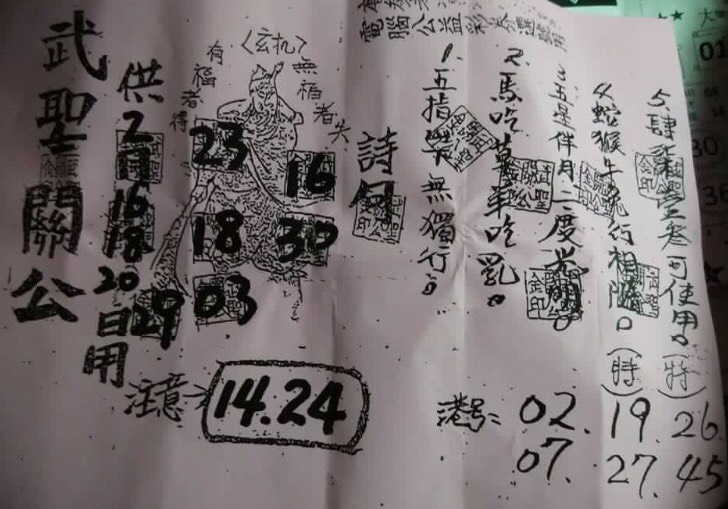 武聖關公
供2月16 18 20日用
有福者得
〈玄机〉
無福者失
23
16
18
30
29
03
注意
14.24
詩句
1. 五指 無獨行。
2. 馬吃萬草吃乳。
3. 五星伴月二度光明。
4. 蛇猴牛流行相隨。(特)
5. 肆柒 叁可使用。(特)
港号: 02. 19. 26
07. 27. 45
01
30